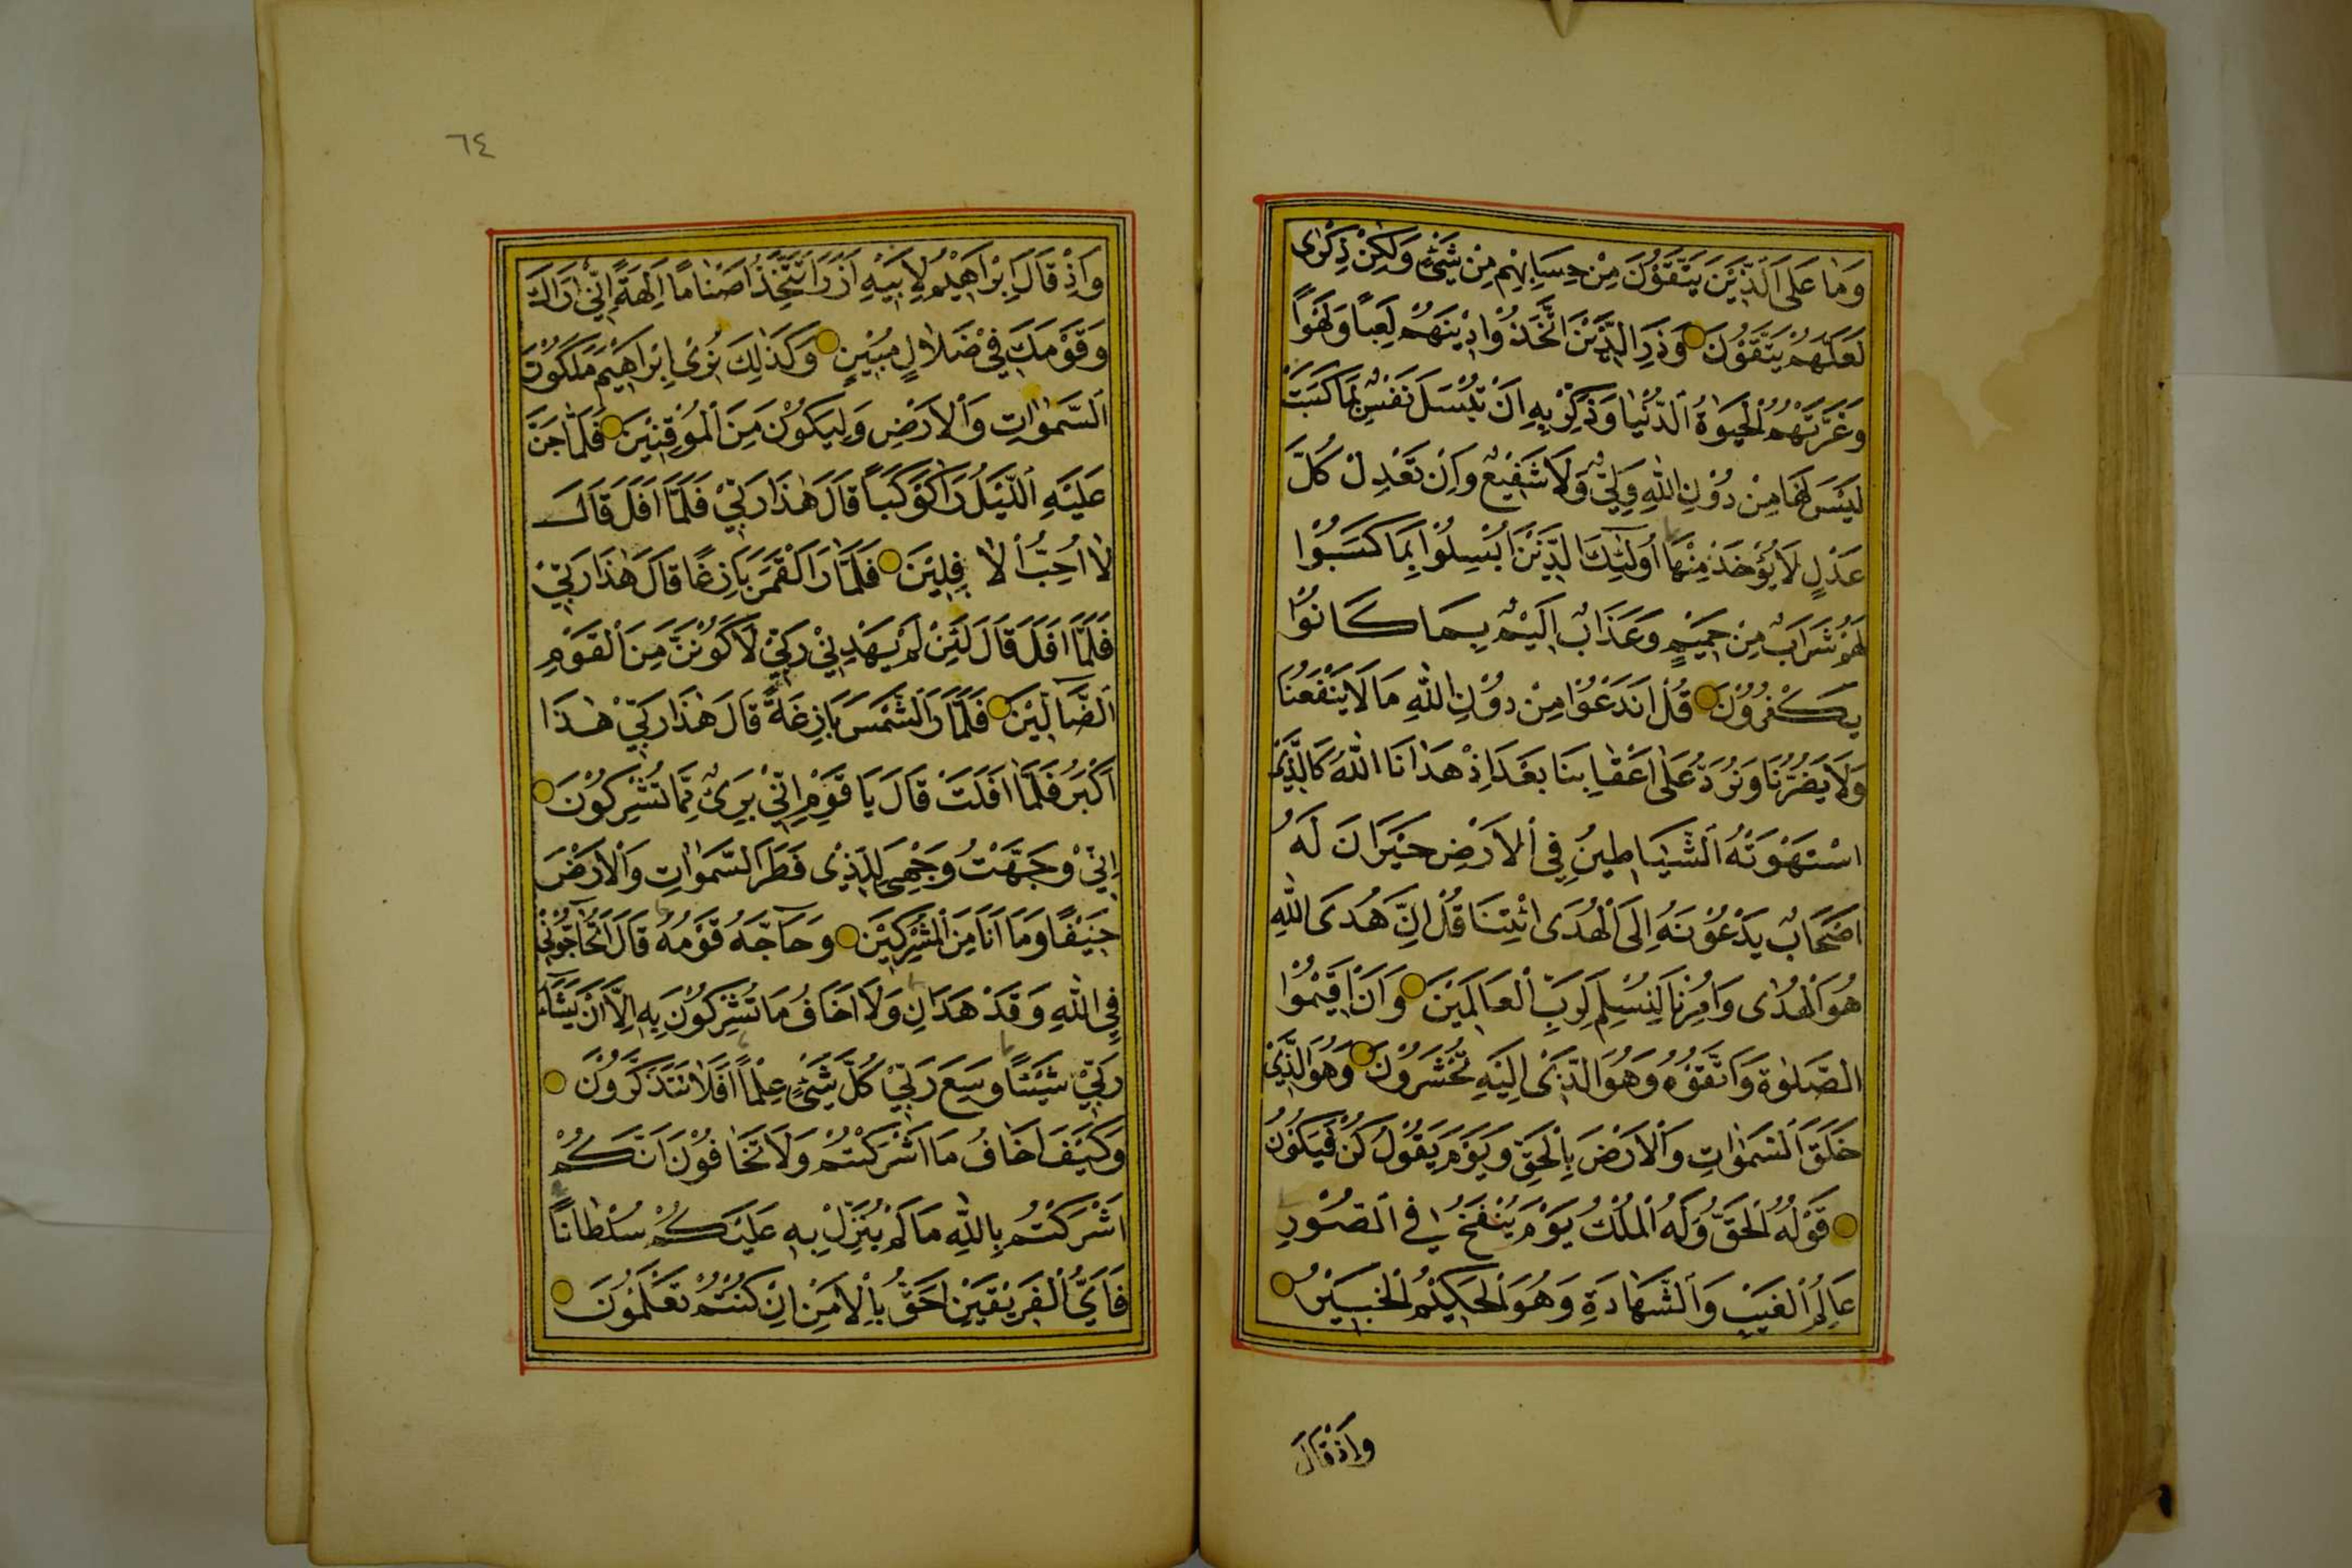 وَمَا عَلَى الَّذِيْنَ يَتَّقُوْنَ مِنْ حِسَابِهِمْ مِنْ شَيْءٍ وَلٰكِنْ ذِكْرٰى
لَعَلَّهُمْ يَتَّقُوْنَ وَذَرِ الَّذِيْنَ اتَّخَذُوْا دِيْنَهُمْ لَعِبًا وَلَهْوًا
وَغَرَّتْهُمُ الْحَيٰوةُ الدُّنْيَا وَذَكِّرْ بِهِ اَنْ تُبْسَلَ نَفْسٌ بِمَا كَسَبَتْ
لَيْسَ لَهَا مِنْ دُوْنِ اللّٰهِ وَلِيٌّ وَلَا شَفِيْعٌ وَاِنْ تَعْدِلْ كُلَّ
عَدْلٍ لَا يُؤْخَذْ مِنْهَا اُولٰئِكَ الَّذِيْنَ اُبْسِلُوْا بِمَا كَسَبُوْا
لَهُمْ شَرَابٌ مِنْ حَمِيْمٍ وَعَذَابٌ اَلِيْمٌ بِمَا كَانُوْا
يَكْفُرُوْنَ قُلْ اَنَدْعُوْا مِنْ دُوْنِ اللّٰهِ مَا لَا يَنْفَعُنَا
وَلَا يَضُرُّنَا وَنُرَدُّ عَلٰى اَعْقَابِنَا بَعْدَ اِذْ هَدٰانَا اللّٰهُ كَالَّذِي
اسْتَهْوَتْهُ الشَّيَاطِيْنُ فِي الْاَرْضِ حَيْرَانَ لَهُ
اَصْحَابٌ يَدْعُوْنَهُ اِلَى الْهُدَى ائْتِنَا قُلْ اِنَّ هُدَى اللّٰهِ
هُوَ الْهُدٰى وَاُمِرْنَا لِنُسْلِمَ لِرَبِّ الْعَالَمِيْنَ وَاَنْ اَقِيْمُوْا
الصَّلٰوةَ وَاتَّقُوْهُ وَهُوَ الَّذِيْ اِلَيْهِ تُحْشَرُوْنَ وَهُوَ الَّذِيْ
خَلَقَ السَّمٰوَاتِ وَالْاَرْضَ بِالْحَقِّ وَيَوْمَ يَقُوْلُ كُنْ فَيَكُوْنُ
قَوْلُهُ الْحَقُّ وَلَهُ الْمُلْكُ يَوْمَ يُنْفَخُ فِي الصُّوْرِ
عَالِمُ الْغَيْبِ وَالشَّهَادَةِ وَهُوَ الْحَكِيْمُ الْخَبِيْرُ
وَاِذْ قَالَ
٦٤
وَاِذْ قَالَ اِبْرَاهِيْمُ لِاَبِيْهِ اٰزَرَ اَتَتَّخِذُ اَصْنَامًا اٰلِهَةً اِنِّيْ اَرَاكَ
وَقَوْمَكَ فِيْ ضَلَالٍ مُبِيْنٍ وَكَذٰلِكَ نُرِيْ اِبْرَاهِيْمَ مَلَكُوْتَ
السَّمٰوَاتِ وَالْاَرْضِ وَلِيَكُوْنَ مِنَ الْمُوْقِنِيْنَ فَلَمَّا جَنَّ
عَلَيْهِ الَّيْلُ رَاٰ كَوْكَبًا قَالَ هٰذَا رَبِّيْ فَلَمَّا اَفَلَ قَالَ
لَا اُحِبُّ الْاٰفِلِيْنَ فَلَمَّا رَاَ الْقَمَرَ بَازِغًا قَالَ هٰذَا رَبِّيْ
فَلَمَّا اَفَلَ قَالَ لَئِنْ لَمْ يَهْدِنِيْ رَبِّيْ لَاَكُوْنَنَّ مِنَ الْقَوْمِ
الضَّالِّيْنَ فَلَمَّا رَاَ الشَّمْسَ بَازِغَةً قَالَ هٰذَا رَبِّيْ هٰذَا
اَكْبَرُ فَلَمَّا اَفَلَتْ قَالَ يَا قَوْمِ اِنِّيْ بَرِيْءٌ مِمَّا تُشْرِكُوْنَ
اِنِّيْ وَجَّهْتُ وَجْهِيَ لِلَّذِيْ فَطَرَ السَّمٰوَاتِ وَالْاَرْضَ
حَنِيْفًا وَمَا اَنَا مِنَ الْمُشْرِكِيْنَ وَحَاجَّهُ قَوْمُهُ قَالَ اَتُحَاجُّوْنِّيْ
فِي اللّٰهِ وَقَدْ هَدَانِ وَلَا اَخَافُ مَا تُشْرِكُوْنَ بِهِ اِلَّا اَنْ يَشَاءَ
رَبِّيْ شَيْئًا وَسِعَ رَبِّيْ كُلَّ شَيْءٍ عِلْمًا اَفَلَا تَتَذَكَّرُوْنَ
وَكَيْفَ اَخَافُ مَا اَشْرَكْتُمْ وَلَا تَخَافُوْنَ اَنَّكُمْ
اَشْرَكْتُمْ بِاللّٰهِ مَا لَمْ يُنَزِّلْ بِهِ عَلَيْكُمْ سُلْطَانًا
فَاَيُّ الْفَرِيْقَيْنِ اَحَقُّ بِالْاَمْنِ اِنْ كُنْتُمْ تَعْلَمُوْنَ